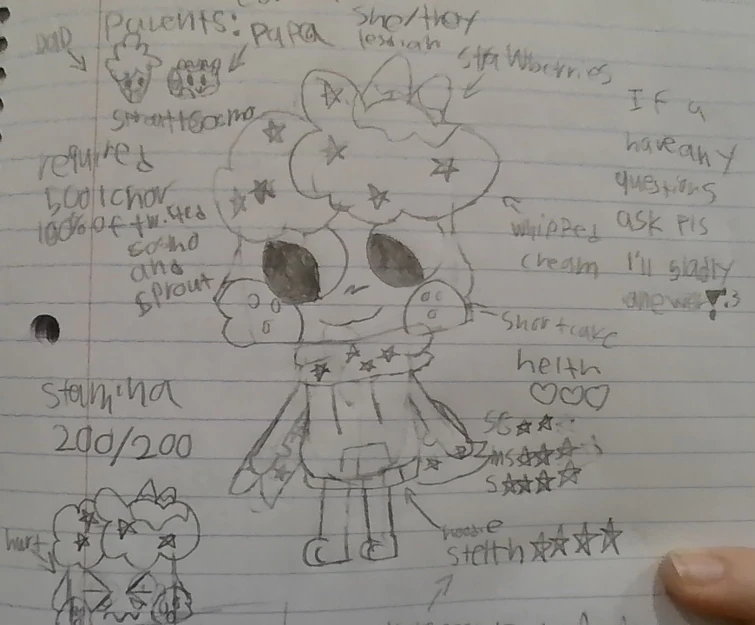 parents:
DAD
papa
she/they
lesbian
strawberries
sprout + cosmo
required
500 ichor
100% of twisted
cosmo
and
sprout
If u
have any
questions
ask pls
I'll gladly
answer! :3
whipped
cream
shortcake
helth
♡♡♡
stamina
200/200
SG☆☆
ms☆☆☆
S☆☆☆☆
hoodie
stelth ☆☆☆☆
hurt